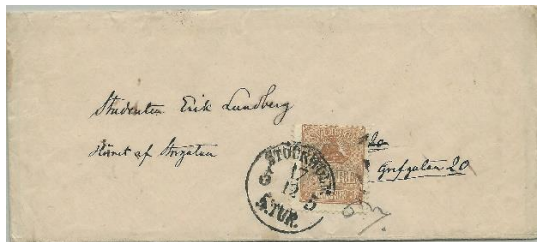 Studenten Erik Lundberg
Hörnet af Storgatan
Grefgatan 20
STOCKHOLM
17
12
5
5.TUR.